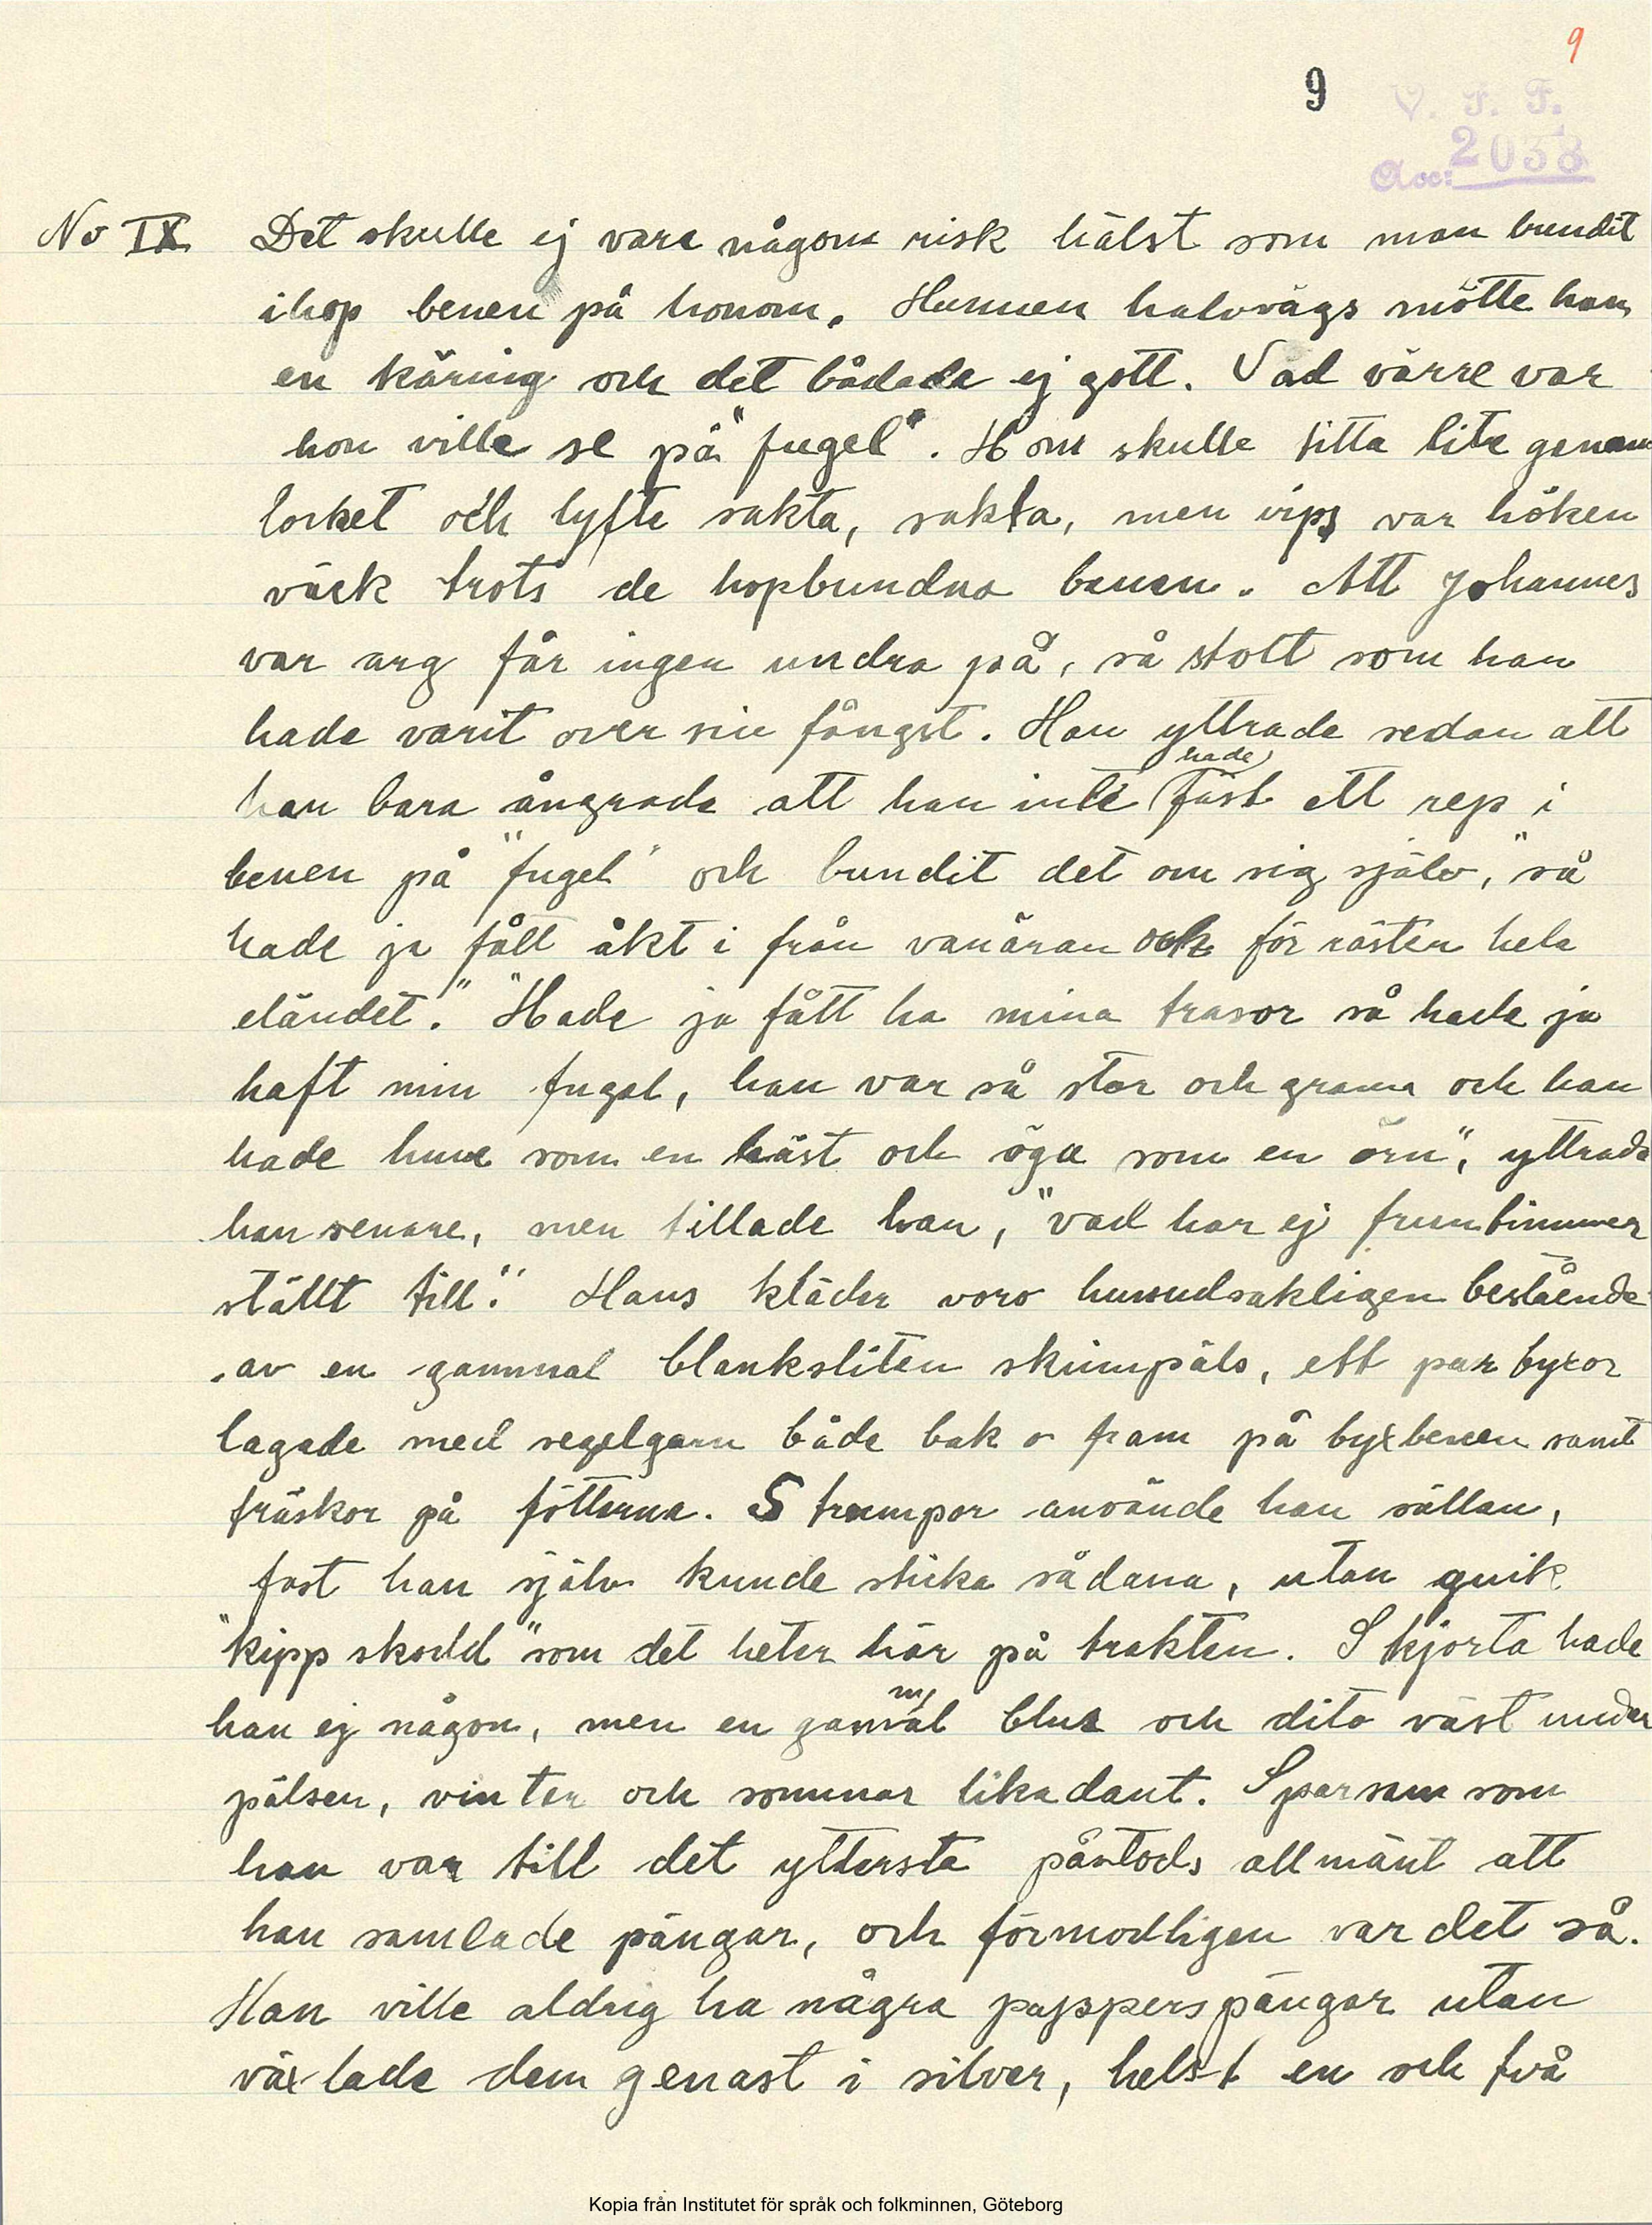 9
9
V. F. F.
Acc: 2038
No IX Det skulle ej vara någon risk hälst som man bundit
ihop benen på honom. Hunnen halvvägs mötte han
en käring och det bådade ej gott. Vad värre var
hon ville se på "fugel". Hon skulle titta lite genom
locket och lyfte sakta, sakta, men vips var höken
väck trots de hopbundna benen. Att Johannes
var arg får ingen undra på, så stolt som han
hade varit över sin fångst. Han yttrade sedan att
han bara ångrade att han inte hade fäst ett rep i
benen på "fugel" och bundit det om sig själv, "så
hade ja fått åkt i från vanäran och för rästen hela
eländet." "Hade ja fått ha mina trasor så hade ja
haft min fugel, han var så stor och grann och han
hade huve som en häst och öga som en örn", yttrade
han senare, men tillade han, "vad har ej fruntimmer
ställt till." Hans kläder voro huvudsakligen bestående
av en gammal blanksliten skinnpäls, ett par byxor
lagade med segelgarn både bak o fram på byxbenen samt
träskor på fötterna. Strumpor använde han sällan,
fast han själv kunde sticka sådana, utan gick
"kipp skodd" som det heter här på trakten. Skjorta hade
han ej någon, men en gammal blus och dito väst under
pälsen, vinter och sommar likadant. Sparsam som
han var till det yttersta påstods allmänt att
han samlade pängar, och förmodligen var det så.
Han ville aldrig ha några papperspängar utan
växlade dem genast i silver, helst en och två
Kopia från Institutet för språk och folkminnen, Göteborg